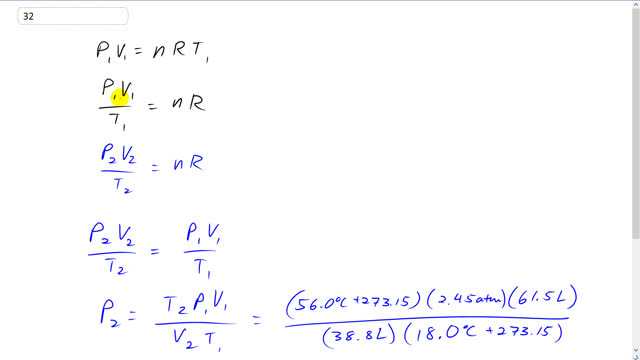 32
P₁V₁ = n R T₁
P₁V₁ / T₁ = n R
P₂V₂ / T₂ = n R
P₂V₂ / T₂ = P₁V₁ / T₁
P₂ = T₂ P₁V₁ / V₂ T₁ = (56.0°C + 273.15) (2.45 atm) (61.5 L) / (38.8 L) (18.0°C + 273.15)